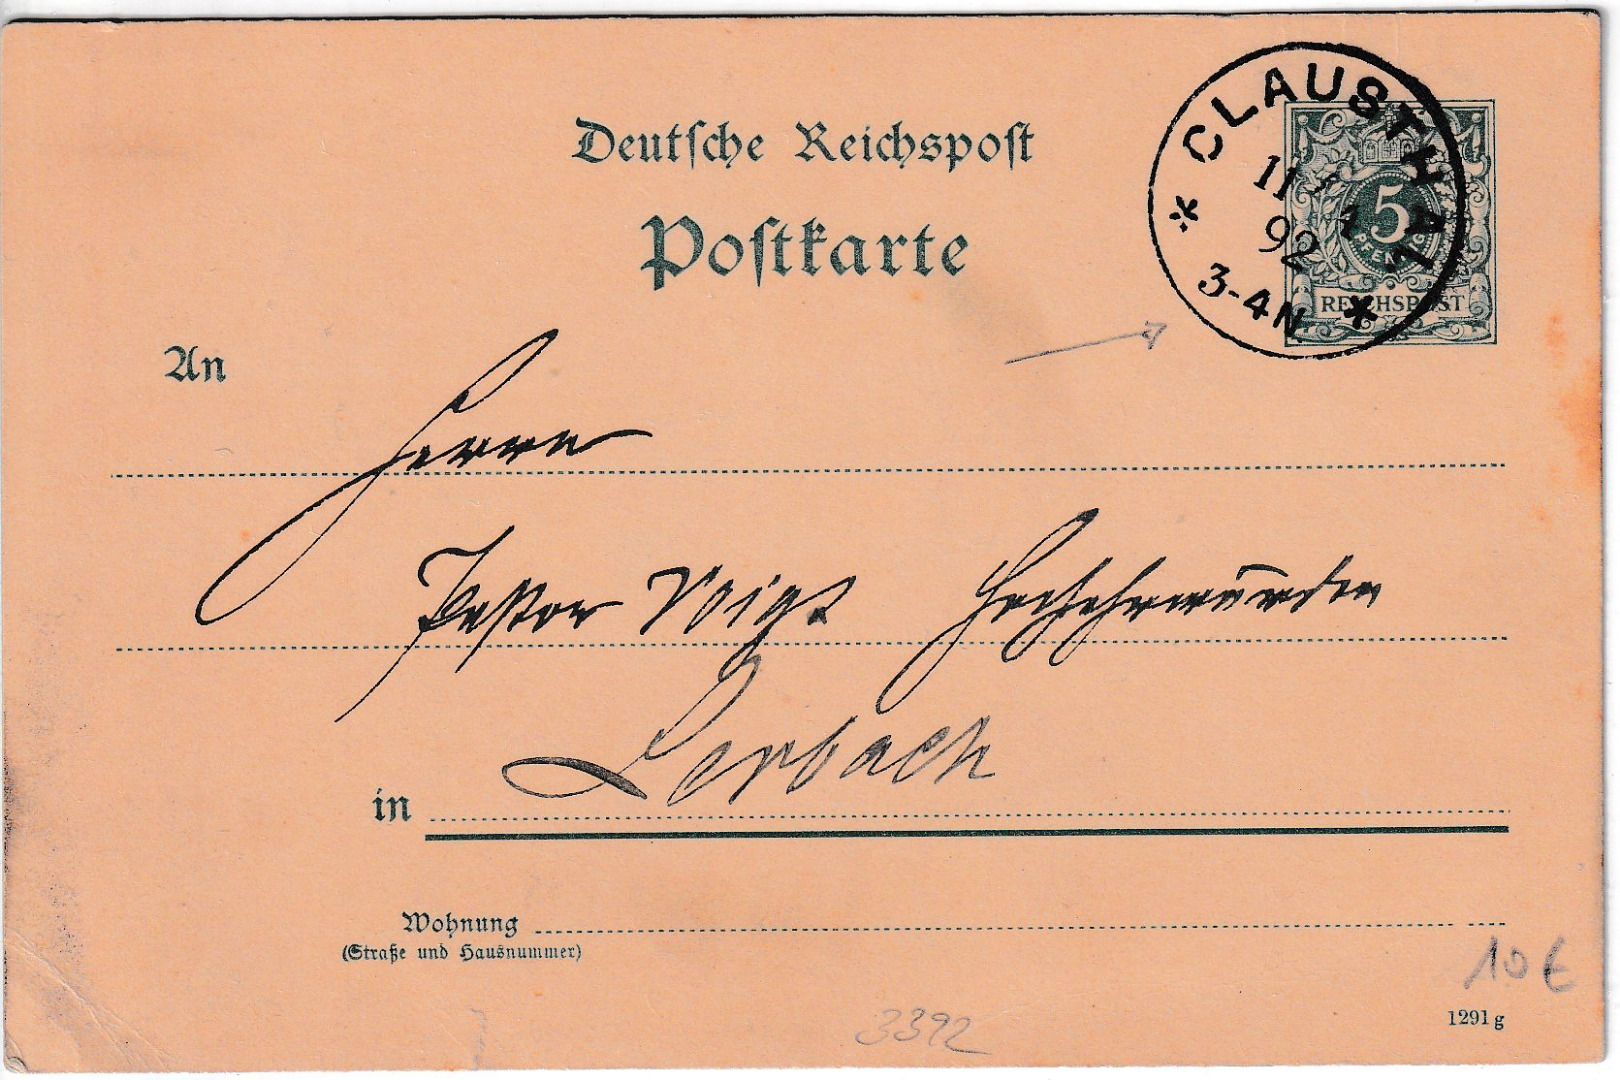 Deutsche Reichspost
Postkarte
* CLAUSTHAL *
11
92
3-4N
5
PFENNIG
REICHSPOST
An
Herrn
Pastor Voigt Hochehrwürden
in Lerbach
Wohnung
(Straße und Hausnummer)
10 €
1291 g
3392